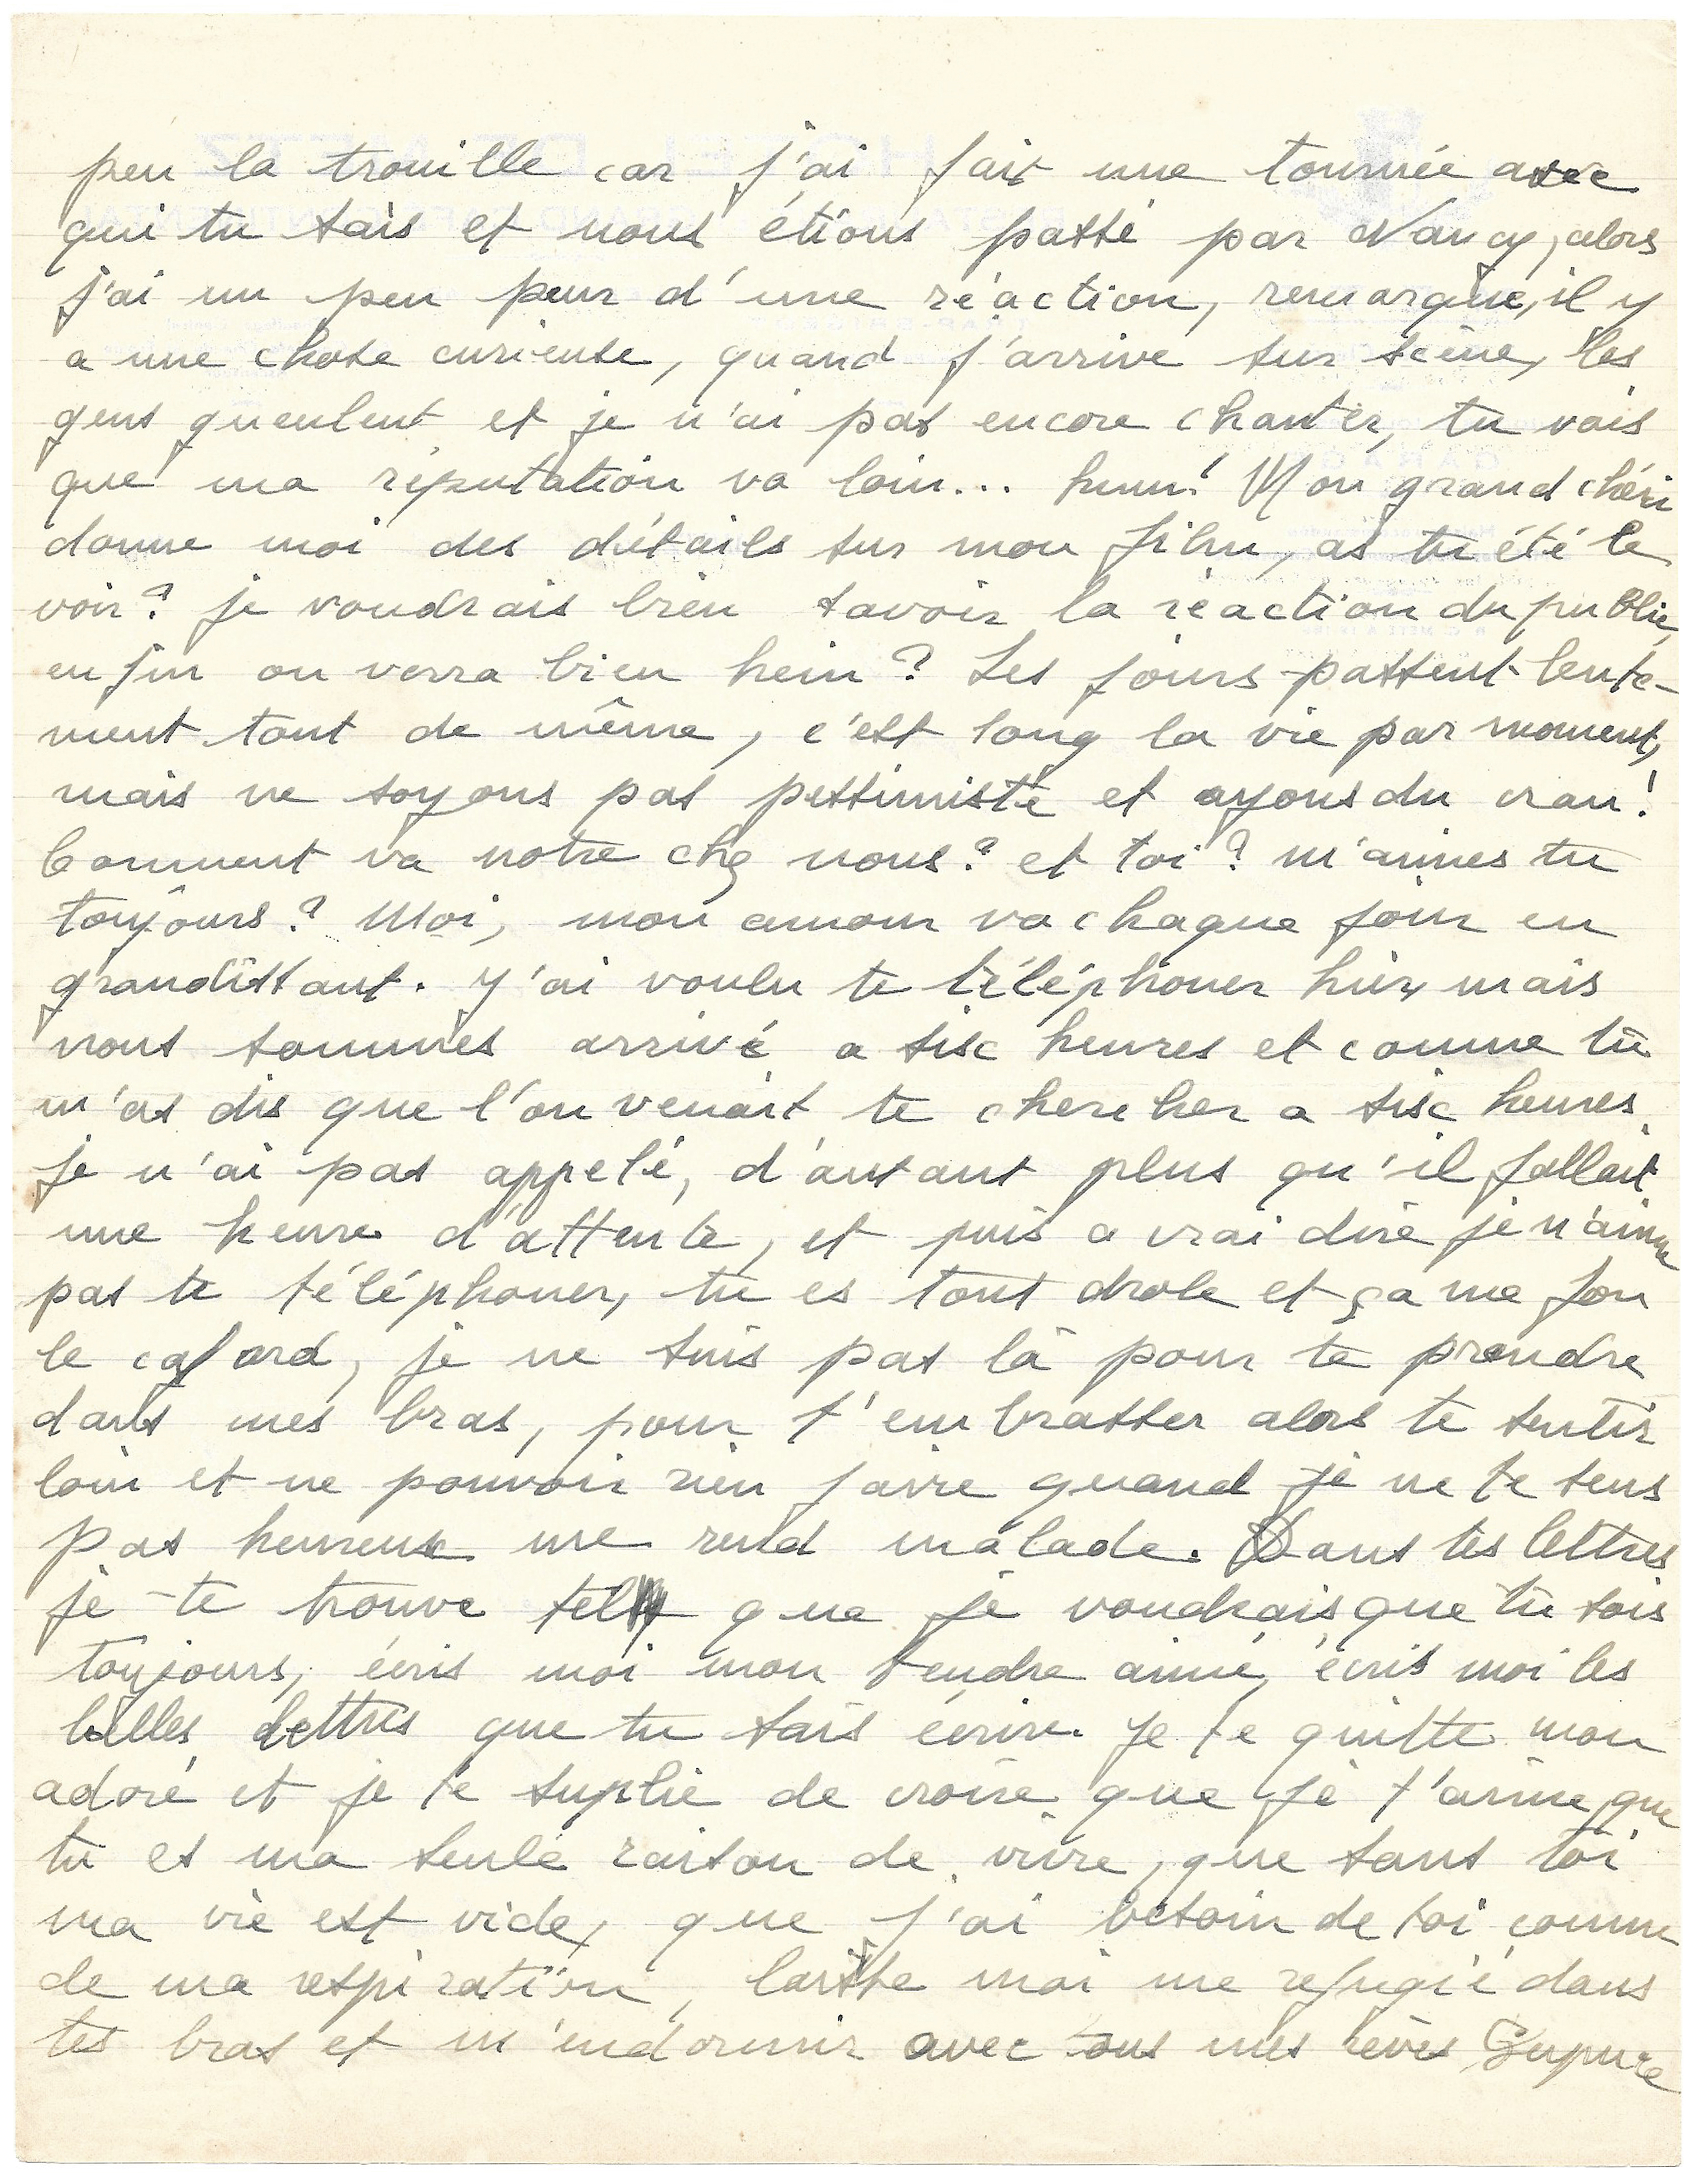 peu la trouille car j'ai fait une tournée avec
qui tu sais et nous étions passé par Nancy, alors
j'ai un peu peur d'une réaction, remarque, il y
a une chose curieuse, quand j'arrive sur scène, les
gens gueulent et je n'ai pas encore chanter, tu vois
que ma réputation va loin... hum! Mon grand chéri
donne moi des détails sur mon film, as tu été le
voir? je voudrais bien savoir la réaction du public,
enfin on verra bien hein? Les jours passent lente-
ment tout de même, c'est long la vie par moment,
mais ne soyons pas pessimiste et ayons du cran!
Comment va notre chez nous? et toi? m'aimes tu
toujours? Moi, mon amour va chaque jour en
grandissant. J'ai voulu te téléphoner hier, mais
nous sommes arrivé a six heures et comme tu
m'as dis que l'on venait te chercher a six heures
je n'ai pas appelé, d'autant plus qu'il fallait
une heure d'attente, et puis a vrai dire je n'aime
pas te téléphoner, tu es tout drole et ça me fou
le cafard, je ne suis pas là pour te prendre
dans mes bras, pour t'embrasser alors te sentir
loin et ne pouvoir rien faire quand je ne te sens
pas heureux me rend malade. Dans tes lettres
je te trouve tel que je voudrais que tu sois
toujours, écris moi mon tendre aimé, écris moi les
belles lettres que tu sais écrire. Je te quitte mon
adoré et je te suplie de croire que je t'aime, que
tu es ma seule raison de vivre, que sans toi
ma vie est vide, que j'ai besoin de toi comme
de ma respiration, laisse moi me refugié dans
tes bras et m'endormir avec tous mes rêves